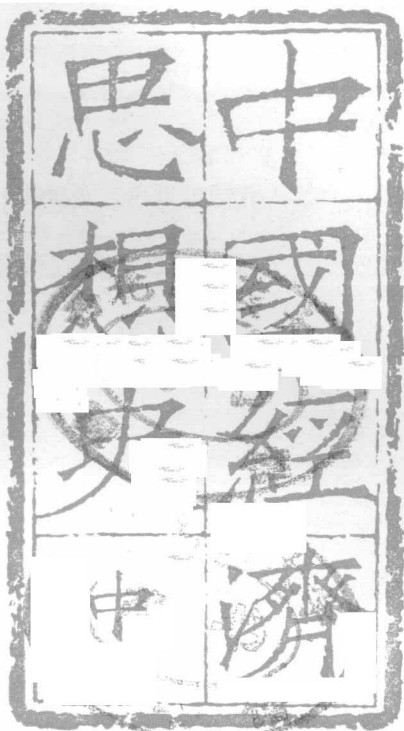 中國經濟
思想史
中